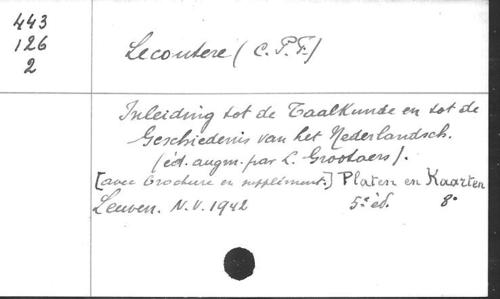 443
126
2
Lecoutere (C.P.F.)
Inleiding tot de Taalkunde en tot de
Geschiedenis van het Nederlandsch.
(éd. augm. par L. Grootaers).
[avec brochure en supplément.] Platen en Kaarten
Leuven. N.V. 1942 5e éd. 8°